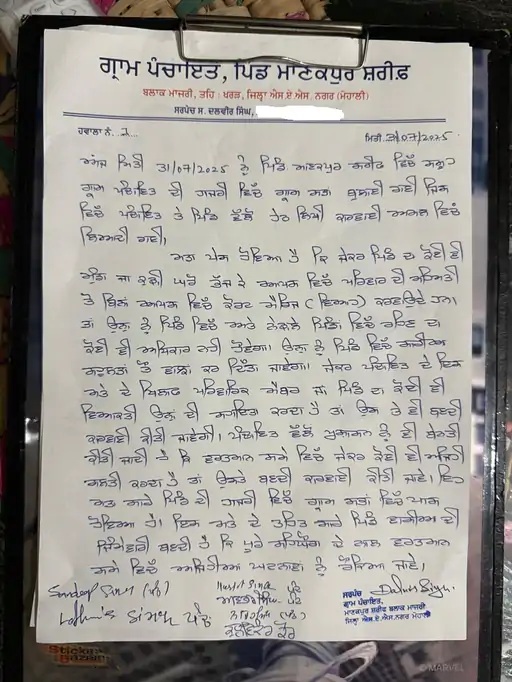 ਗ੍ਰਾਮ ਪੰਚਾਇਤ, ਪਿੰਡ ਮਾਣਕਪੁਰ ਸ਼ਰੀਫ਼
ਬਲਾਕ ਮਾਜਰੀ, ਤਹਿ: ਖਰੜ, ਜ਼ਿਲ੍ਹਾ ਐਸ.ਏ.ਐਸ. ਨਗਰ (ਮੋਹਾਲੀ)
ਸਰਪੰਚ ਸ. ਦਲਵੀਰ ਸਿੰਘ,
ਹਵਾਲਾ ਨੰ.
ਮਿਤੀ 31/07/2025
ਅੱਜ ਮਿਤੀ 31/07/2025 ਨੂੰ ਪਿੰਡ ਮਾਣਕਪੁਰ ਸ਼ਰੀਫ ਵਿੱਚ ਸਮੂਹ
ਗ੍ਰਾਮ ਪੰਚਾਇਤ ਦੀ ਹਾਜਰੀ ਵਿੱਚ ਗ੍ਰਾਮ ਸਭਾ ਬੁਲਾਈ ਗਈ ਜਿਸ
ਵਿੱਚ ਪੰਚਾਇਤ ਤੇ ਪਿੰਡ ਵੱਲੋਂ ਹੇਠ ਲਿਖੀ ਕਾਰਵਾਈ ਅਮਲ ਵਿੱਚ
ਲਿਆਂਦੀ ਗਈ।
ਮਤਾ ਪੇਸ਼ ਹੋਇਆ ਹੈ ਕਿ ਜੇਕਰ ਪਿੰਡ ਦਾ ਕੋਈ ਵੀ
ਮੁੰਡਾ ਜਾਂ ਕੁੜੀ ਘਰੋਂ ਭੱਜ ਕੇ ਆਪਸ ਵਿੱਚ ਪਰਿਵਾਰ ਦੀ ਸਹਿਮਤੀ
ਤੋਂ ਬਿਨਾਂ ਆਪਸ ਵਿੱਚ ਕੋਰਟ ਮੈਰਿਜ (ਵਿਆਹ) ਕਰਵਾਉਂਦੇ ਹਨ।
ਤਾਂ ਉਨ੍ਹਾਂ ਨੂੰ ਪਿੰਡ ਵਿੱਚ ਅਤੇ ਨੇੜਲੇ ਪਿੰਡਾਂ ਵਿੱਚ ਰਹਿਣ ਦਾ
ਕੋਈ ਵੀ ਅਧਿਕਾਰ ਨਹੀਂ ਹੋਵੇਗਾ। ਉਨ੍ਹਾਂ ਨੂੰ ਪਿੰਡ ਵਿੱਚ
ਕਰ ਦਿੱਤਾ ਜਾਵੇਗਾ। ਜੇਕਰ ਪੰਚਾਇਤ ਦੇ ਇਸ
ਮਤੇ ਦੇ ਖਿਲਾਫ ਪਰਿਵਾਰਿਕ ਮੈਂਬਰ ਜਾਂ ਪਿੰਡ ਦਾ ਕੋਈ ਵੀ
ਵਿਅਕਤੀ ਉਨ੍ਹਾਂ ਦੀ ਸਹਾਇਤਾ ਕਰਦਾ ਹੈ ਤਾਂ ਉਸ ਤੇ ਵੀ ਬਣਦੀ
ਕਾਰਵਾਈ ਕੀਤੀ ਜਾਵੇਗੀ। ਪੰਚਾਇਤ ਵੱਲੋਂ ਪ੍ਰਸ਼ਾਸਨ ਨੂੰ ਵੀ ਬੇਨਤੀ
ਕੀਤੀ ਜਾਂਦੀ ਹੈ ਕਿ ਵਰਤਮਾਨ ਸਮੇਂ ਵਿੱਚ ਜੇਕਰ ਕੋਈ ਵੀ ਅਜਿਹੀ
ਗਲਤੀ ਕਰਦਾ ਹੈ ਤਾਂ ਉਸਤੇ ਬਣਦੀ ਕਾਰਵਾਈ ਕੀਤੀ ਜਾਵੇ। ਇਹ
ਮਤਾ ਸਾਰੇ ਪਿੰਡ ਦੀ ਹਾਜਰੀ ਵਿੱਚ ਗ੍ਰਾਮ ਸਭਾ ਵਿੱਚ ਪਾਸ
ਹੋਇਆ ਹੈ। ਇਸ ਮਤੇ ਦੇ ਤਹਿਤ ਸਾਰੇ ਪਿੰਡ ਵਾਸੀਆਂ ਦੀ
ਜਿੰਮੇਵਾਰੀ ਬਣਦੀ ਹੈ ਕਿ ਪੂਰੇ ਸਹਿਯੋਗ ਦੇ ਨਾਲ ਵਰਤਮਾਨ
ਸਮੇਂ ਵਿੱਚ ਅਜਿਹੀਆਂ ਘਟਨਾਵਾਂ ਨੂੰ ਰੋਕਿਆ ਜਾਵੇ।
Sandeep Singh (ਪੰਚ)
Singh ਪੰਚ
ਪੰਚ
ਕੁਲਵਿੰਦਰ ਕੌਰ
Dalvir Singh
ਸਰਪੰਚ
ਗ੍ਰਾਮ ਪੰਚਾਇਤ,
ਮਾਣਕਪੁਰ ਸ਼ਰੀਫ ਬਲਾਕ ਮਾਜਰੀ
ਜ਼ਿਲ੍ਹਾ ਐਸ.ਏ.ਐਸ.ਨਗਰ ਮੋਹਾਲੀ
Sticker
Bazaar
© MARVEL